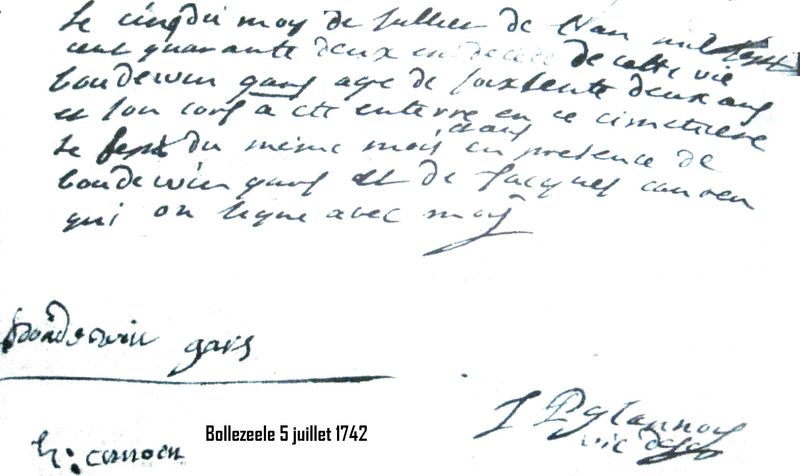 le cinq du moy de Juliet de l'an mil sept
cent quarante deux est decede de cette vie
boudewin gars age de soixtente deux ans
et son cors a ete enterre en ce cimetiere
le sept du meme mois et ans en presence de
boudewin gars et de Jacques canoen
qui on signe avec moy
boudewin gars
canoen
Bollezeele 5 juillet 1742